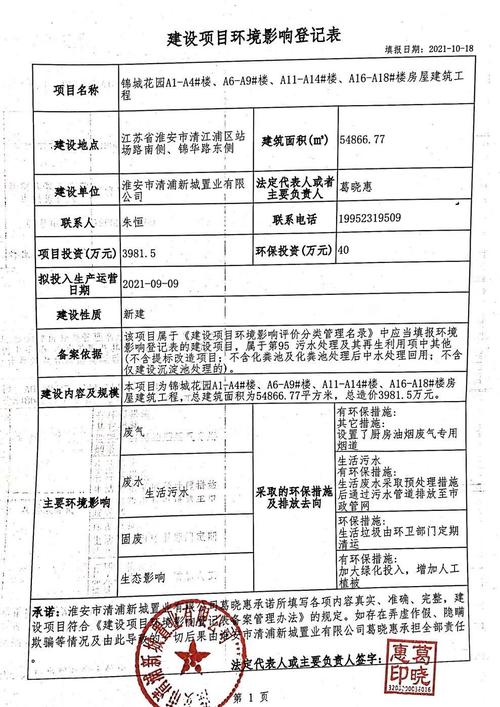 建设项目环境影响登记表
填报日期：2021-10-18
项目名称
锦城花园A1-A4#楼、A6-A9#楼、A11-A14#楼、A16-A18#楼房屋建筑工
程
建设地点
江苏省淮安市清江浦区站
场路南侧、锦华路东侧
建筑面积(㎡)
54866.77
建设单位
淮安市清浦新城置业有限公
司
法定代表人或者
主要负责人
葛晓惠
联系人
朱恒
联系电话
19952319509
项目投资(万元)
3981.5
环保投资(万元)
40
拟投入生产运营
日期
2021-09-09
建设性质
新建
备案依据
该项目属于《建设项目环境影响评价分类管理名录》中应当填报环境
影响登记表的建设项目，属于第95 污水处理及其再生利用项中其他
(不含提标改造项目；不含化粪池及化粪池处理后中水处理回用；不含
仅建设沉淀池处理的)。
建设内容及规模
本项目为锦城花园A1-A4#楼、A6-A9#楼、A11-A14#楼、A16-A18#楼房
屋建筑工程，总建筑面积为54866.77平方米，总造价3981.5万元。
主要环境影响
废气
废水
生活污水
固废
生态影响
采取的环保措施
及排放去向
有环保措施：
其它措施：
设置了厨房油烟废气专用
烟道
生活污水
有环保措施：
生活废水采取预处理措施
后通过污水管道排放至市
政管网
环保措施：
生活垃圾由环卫部门定期
清运
有环保措施：
加大绿化投入，增加人工
植被
承诺：淮安市清浦新城置业有限公司葛晓惠承诺所填写各项内容真实、准确、完整，建
设项目符合《建设项目环境影响登记表备案管理办法》的规定。如存在弄虚作假、隐瞒
欺骗等情况及由此导致的一切后果由淮安市清浦新城置业有限公司葛晓惠承担全部责任
。
法定代表人或主要负责人签字：
葛晓
惠印
第 1 页